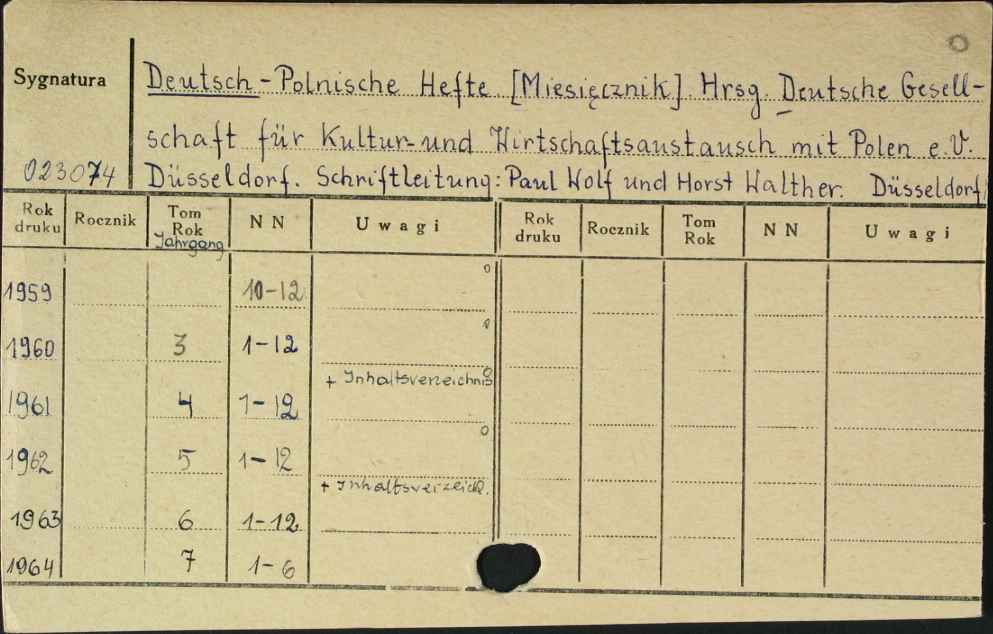 Sygnatura
Deutsch-Polnische Hefte [Miesięcznik]. Hrsg. Deutsche Gesell-
schaft für Kultur- und Wirtschaftsaustausch mit Polen e.V.
023074 Düsseldorf. Schriftleitung: Paul Wolf und Horst Walther. Düsseldorf
Rok druku Rocznik Tom Rok Jahrgang NN Uwagi Rok druku Rocznik Tom Rok NN Uwagi
1959 10-12
1960 3 1-12
+ Inhaltsverzeichnis
1961 4 1-12
1962 5 1-12
+ Inhaltsverzeich.
1963 6 1-12
1964 7 1-6